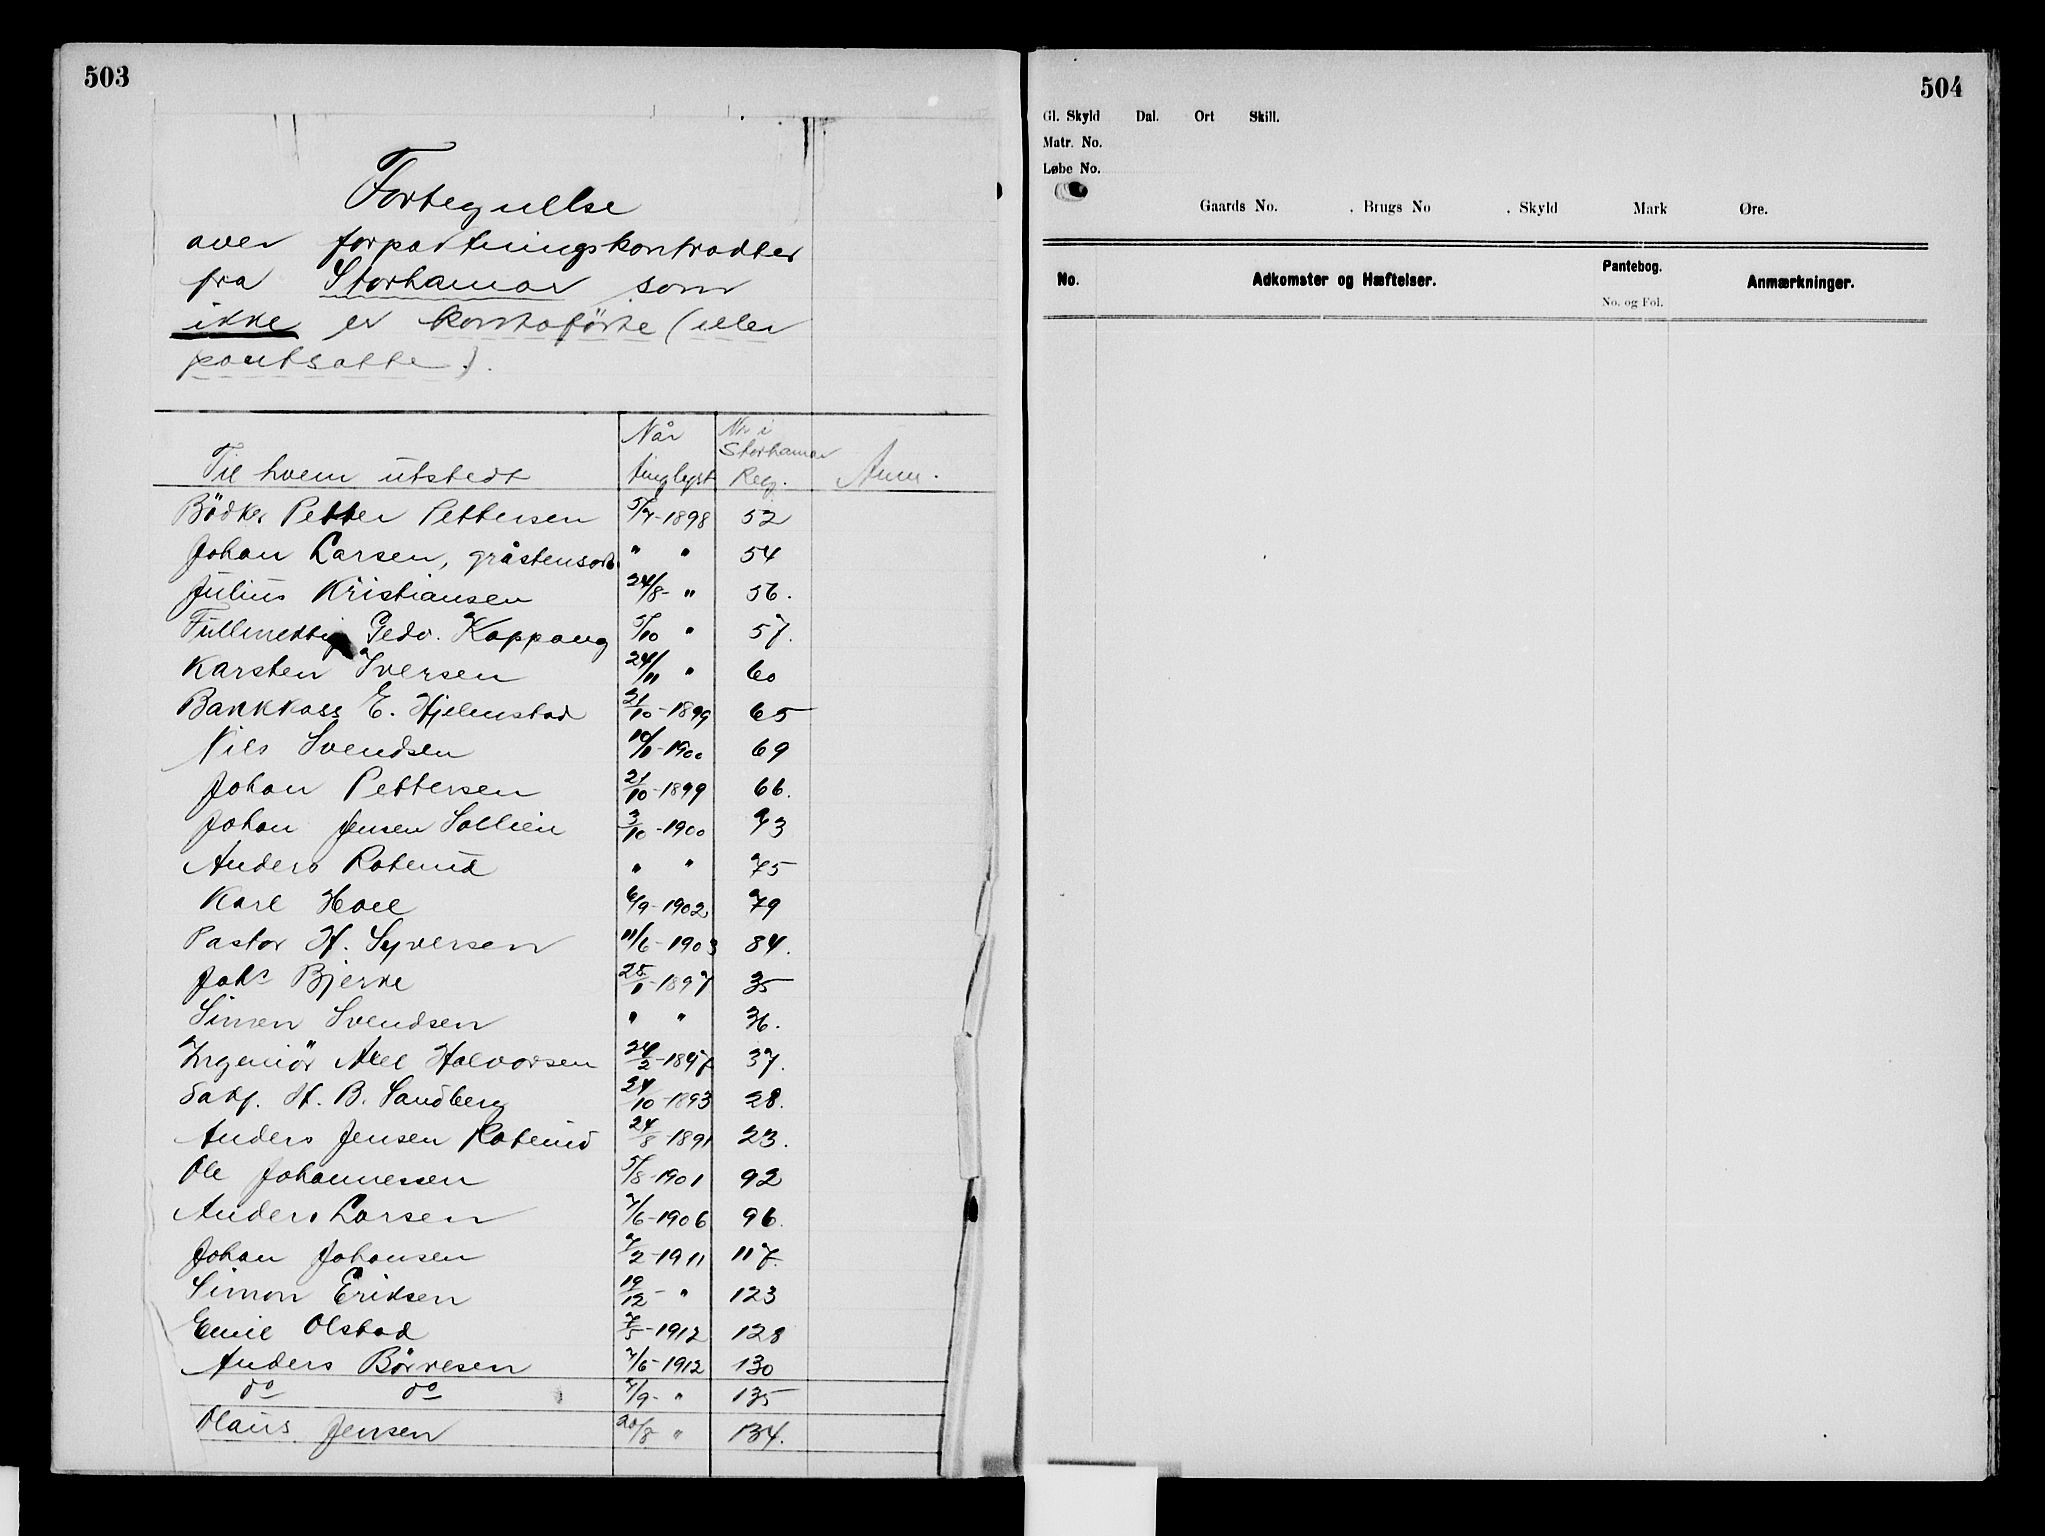 503
Fortegnelse
over forpaktningskontrakter
fra Storhamar som
ikke er kontoførte (eller
pantsatte).
Til hvem utstedt Når tinglyst Nr i Storhamar Reg. Anm.
Bödker Petter Pettersen 5/7-1898 52
Johan Larsen, gråstensarb. " " 54
Julius Kristiansen 24/8- " 56.
Fullmektig Pedr. Koppang 5/10 " 57.
Karsten Iversen 24/11 " 60
Bankkass E. Hjelmstad 21/10-1899 65
Nils Svendsen 10/11-1900 69
Johan Pettersen 21/10-1899 66.
Johan Jensen Sollien 3/10-1900 73
Anders Roterud " " 75
Karl Hoel 6/9-1902 79
Pastor H. Syversen 11/6-1903 84.
Johs Bjerke 28/1-1897 35
Simen Svendsen " " 36.
Ingeniör Axel Halvorsen 24/2-1897 37.
Sakf. H. B. Sandberg 24/10-1893 28.
Anders Jensen Roterud 24/8-1891 23.
Ole Johannessen 5/8-1901 92
Anders Larsen 7/6-1906 96.
Johan Johansen 7/2-1911 117.
Simon Eriksen 19/12- " 123
Emil Olstad 7/5-1912 128
Anders Börresen 7/6-1912 130
do do 7/9- " 135
Olaus Jensen 20/8 " 134.
504
Gl. Skyld Dal. Ort Skill.
Matr. No.
Løbe No.
Gaards No. . Brugs No . Skyld Mark Øre.
No. Adkomster og Hæftelser. Pantebog. No. og Fol. Anmærkninger.